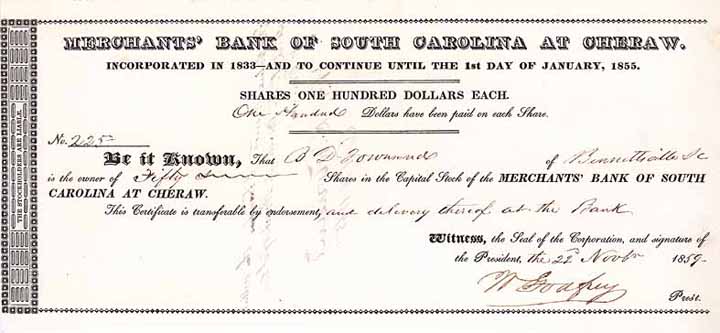 MERCHANTS' BANK OF SOUTH CAROLINA AT CHERAW.
INCORPORATED IN 1833—AND TO CONTINUE UNTIL THE 1st DAY OF JANUARY, 1855.
SHARES ONE HUNDRED DOLLARS EACH.
One Hundred Dollars have been paid on each Share.
No. 225
Be it Known, That D Townsend of Bennettsville Sc
is the owner of Fifty Shares in the Capital Stock of the MERCHANTS' BANK OF SOUTH
CAROLINA AT CHERAW.
This Certificate is transferable by endorsement, and delivery thereof at the Bank
Witness, the Seal of the Corporation, and signature of
the President, the 22d Novbr 1859.
W Godfrey
Prest.
THE STOCKHOLDERS ARE LIABLE.